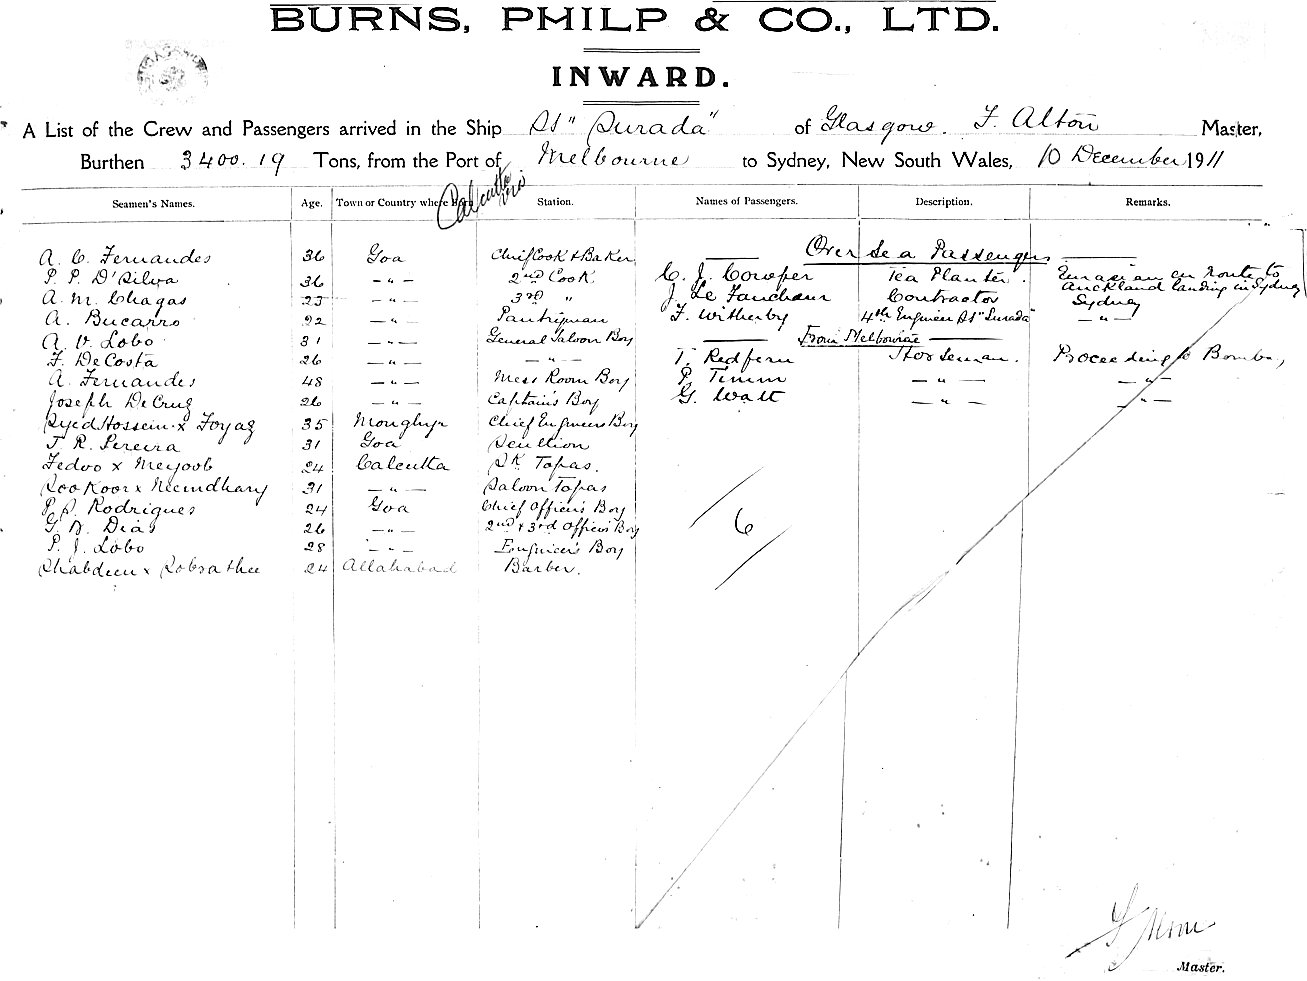 BURNS, PHILP & CO., LTD.
INWARD.
A List of the Crew and Passengers arrived in the Ship SS "Surada" of Glasgow. F. Alton Master,
Burthen 3400.19 Tons, from the Port of Melbourne to Sydney, New South Wales, 10 December 1911
Calcutta
Seamen's Names. Age. Town or Country where Born Station. Names of Passengers. Description. Remarks.
Over Sea Passengers
A. C. Fernandes 36 Goa Chief Cook & Baker
P. P. D'Silva 36 — " — 2nd Cook C. J. Cowper Tea Planter. Eurasian en Route to
Auckland landing in Sydney
A. M. Chagas — " — 3rd " J. Le Fancheur Contractor Sydney
A. Bucarro 22 — " — Pantryman F. Witherby 4th Engineer SS "Surada" — " —
A. V. Lobo 31 — " — General Saloon Boy From Melbourne
F. De Costa 26 — " — — " — T. Redfern Horseman. Proceeding to Bombay
A. Fernandes 48 — " — Mess Room Boy P. Timm — " — — " —
Joseph De Cruz 26 — " — Captain's Boy G. Watt — " — — " —
Syed Hossein x Foyaz 35 Monghyr Chief Engineers Boy
J. R. Pereira 31 Goa Scullion
Fedoo x Meyoob 24 Calcutta SK Topas.
31 — " — Saloon Topas
P. S. Rodrigues 24 Goa Chief Officers Boy
G. N. Dias 26 — " — 2nd & 3rd Officers Boy
P. J. Lobo 28 — " — Engineer's Boy
24 Allahabad Barber.
6
Master.